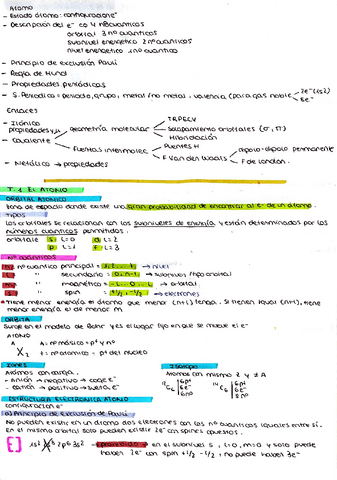 Átomo
- Estado átomo: configuración e⁻
- Descripción del e⁻ co 4 nºcuanticos
orbital 3 nº cuanticos
subnivel energetico 2 nºcuanticos
nivel energetico 1 nº cuantico
- Principio de exclusión Pauli
- Regla de Hund
- Propiedades periódicas
- S. Periodico = periodo, grupo, metal/no metal, valencia (para gas noble 2e⁻(1s²)
8e⁻
Enlaces
- Iónico
propiedades
- Covalente
geometría molecular
TRPECV
Solapamiento orbitales (σ, π)
Hibridación
Fuerzas intermolec
Puentes H
F Van der Waals
dipolo-dipolo permanente
F de London
- Metálico → propiedades
T.1 EL ATOMO
ORBITAL ATOMICO
Zona de espacio donde existe una gran probabilidad de encontrar al e⁻ de un átomo.
Tipos
Los orbitales se relacionan con los subniveles de energía y están determinados por los
números cuanticos permitidos.
orbitals s l=0 d l=2
p l=1 f l=3
Nº CUANTICOS
nº cuantico principal = 1, 2... → nivel
" secundario = 0...n-1 → subnivel/tipo orbital
" magnético = -l...0...l → orbital
" spin = +1/2, -1/2 → electrones
* Tiene menor energía el átomo que menor (n+l) tenga. Si tienen igual (n+l), tiene
menor energía el de menor n
ORBITA
Surge en el modelo de Bohr y es el lugar fijo en que se mueve el e⁻
ATOMO
A A = nº másico = p⁺ y nº
X
Z = nº atomico = p⁺ del nucleo
IONES
Átomos con carga.
- Anión → negativo → coge e⁻
- Catión → positivo → suelta e⁻
Isotopo
Átomos con mismo Z y ≠ A
¹²₆C 6p⁺ 6e⁻ 6n
¹⁴₆C 6p⁺ 6e⁻ 8n
ESTRUCTURA ELECTRONICA ATOMO
Configuración e⁻
a) Principio de Exclusión de Pauli
No pueden existir en un átomo dos electrones con los nº cuanticos iguales entre sí.
En el mismo orbital solo pueden existir 2e⁻ con spines opuestos.
Ej 1s² 2p⁶ 3s² → prohibido → en el subnivel s, l=0, m=0 y solo puede
haber 2e⁻ con spin +1/2 -1/2, no puede haber 3e⁻